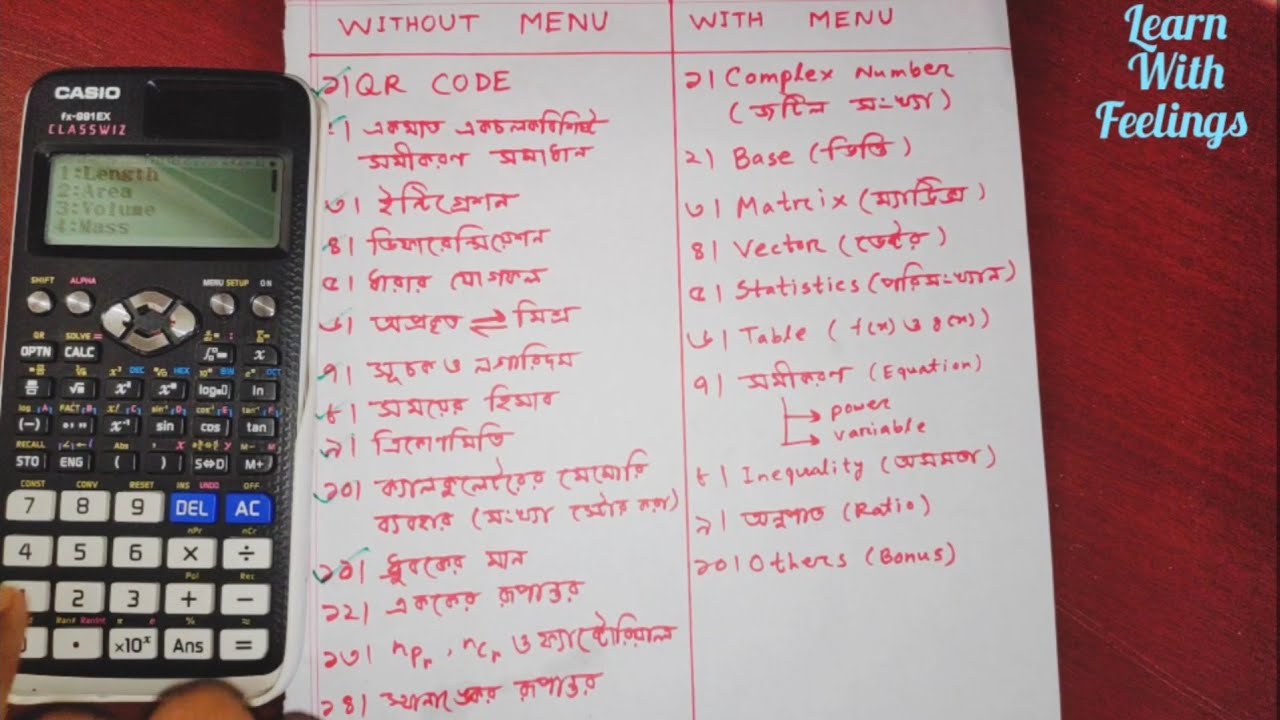 Learn
With
Feelings
WITHOUT MENU
১। QR CODE
২। একমাত্র একচলকবিশিষ্ট
সমীকরণ সমাধান
৩। ইন্টিগ্রেশন
৪। ডিফারেন্সিয়েশন
৫। ধারার যোগফল
৬। অপ্রকৃত ⇌ মিশ্র
৭। সূচক ও লগারিদম
৮। সময়ের হিসাব
৯। ত্রিকোণমিতি
১০। ক্যালকুলেটরের মেমোরি
ব্যবহার (সংখ্যা স্টোর করা)
১১। ধ্রুবকের মান
১২। এককের রূপান্তর
১৩। nPr, nCr ও ফ্যাক্টোরিয়াল
১৪। স্থানাঙ্কের রূপান্তর
WITH MENU
১। Complex Number
(জটিল সংখ্যা)
২। Base (ভিত্তি)
৩। Matrix (ম্যাট্রিক্স)
৪। Vector (ভেক্টর)
৫। Statistics (পরিসংখ্যান)
৬। Table (f(x) ও g(x))
৭। সমীকরণ (Equation)
→ power
→ variable
৮। Inequality (অসমতা)
৯। অনুপাত (Ratio)
১০। Others (Bonus)
CASIO
fx-991EX
CLASSWIZ
1:Length
2:Area
3:Volume
4:Mass
SHIFT ALPHA MENU SETUP ON
QR SOLVE =
OPTN CALC x
log▫ ln
(-) x⁻¹ sin cos tan
RECALL Abs
STO ENG ( ) S⇔D M+
CONST CONV RESET INS UNDO OFF
7 8 9 DEL AC
nPr nCr
4 5 6 × ÷
Pol Rec
1 2 3 + −
Ran# RanInt π e %
0 • ×10ˣ Ans =